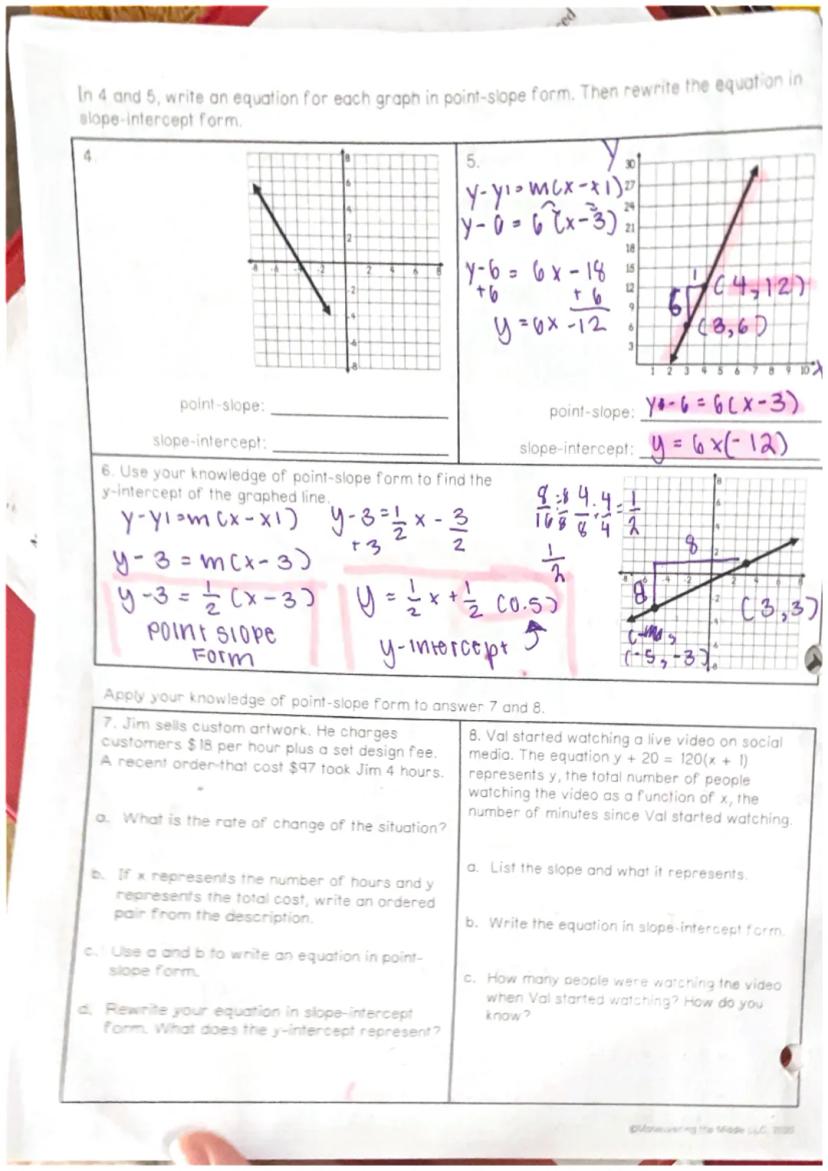 In 4 and 5, write an equation for each graph in point-slope form. Then rewrite the equation in
slope-intercept form.
4.
8
6
4
2
-8 -6 -4 -2 2 4 6 8
-2
-4
-6
-8
point-slope:
slope-intercept:
5.
y-y1=m(x-x1)
y-6=6(x-3)
y-6 = 6x-18
+6 +6
y=6x-12
Y
30
27
24
21
18
15
12
9
6
3
1 2 3 4 5 6 7 8 9 10 x
1
6
(4,12)
(3,6)
point-slope: y-6=6(x-3)
slope-intercept: y=6x(-12)
6. Use your knowledge of point-slope form to find the
y-intercept of the graphed line.
y-y1=m(x-x1)
y-3=m(x-3)
y-3=1/2(x-3)
POINT SLOPE
FORM
y-3=1/2x-3/2
+3
y=1/2x+1/2 (0.5)
y-intercept
8/16÷8/8 4/8÷4/4=1/2
1/2
8
8
(3,3)
(-5,-3)
Apply your knowledge of point-slope form to answer 7 and 8.
7. Jim sells custom artwork. He charges
customers $18 per hour plus a set design fee.
A recent order that cost $97 took Jim 4 hours.
a. What is the rate of change of the situation?
b. If x represents the number of hours and y
represents the total cost, write an ordered
pair from the description.
c. Use a and b to write an equation in point-
slope form.
d. Rewrite your equation in slope-intercept
form. What does the y-intercept represent?
8. Val started watching a live video on social
media. The equation y + 20 = 120(x + 1)
represents y, the total number of people
watching the video as a function of x, the
number of minutes since Val started watching.
a. List the slope and what it represents.
b. Write the equation in slope-intercept form.
c. How many people were watching the video
when Val started watching? How do you
know?
©Maneuvering the Middle LLC, 2020